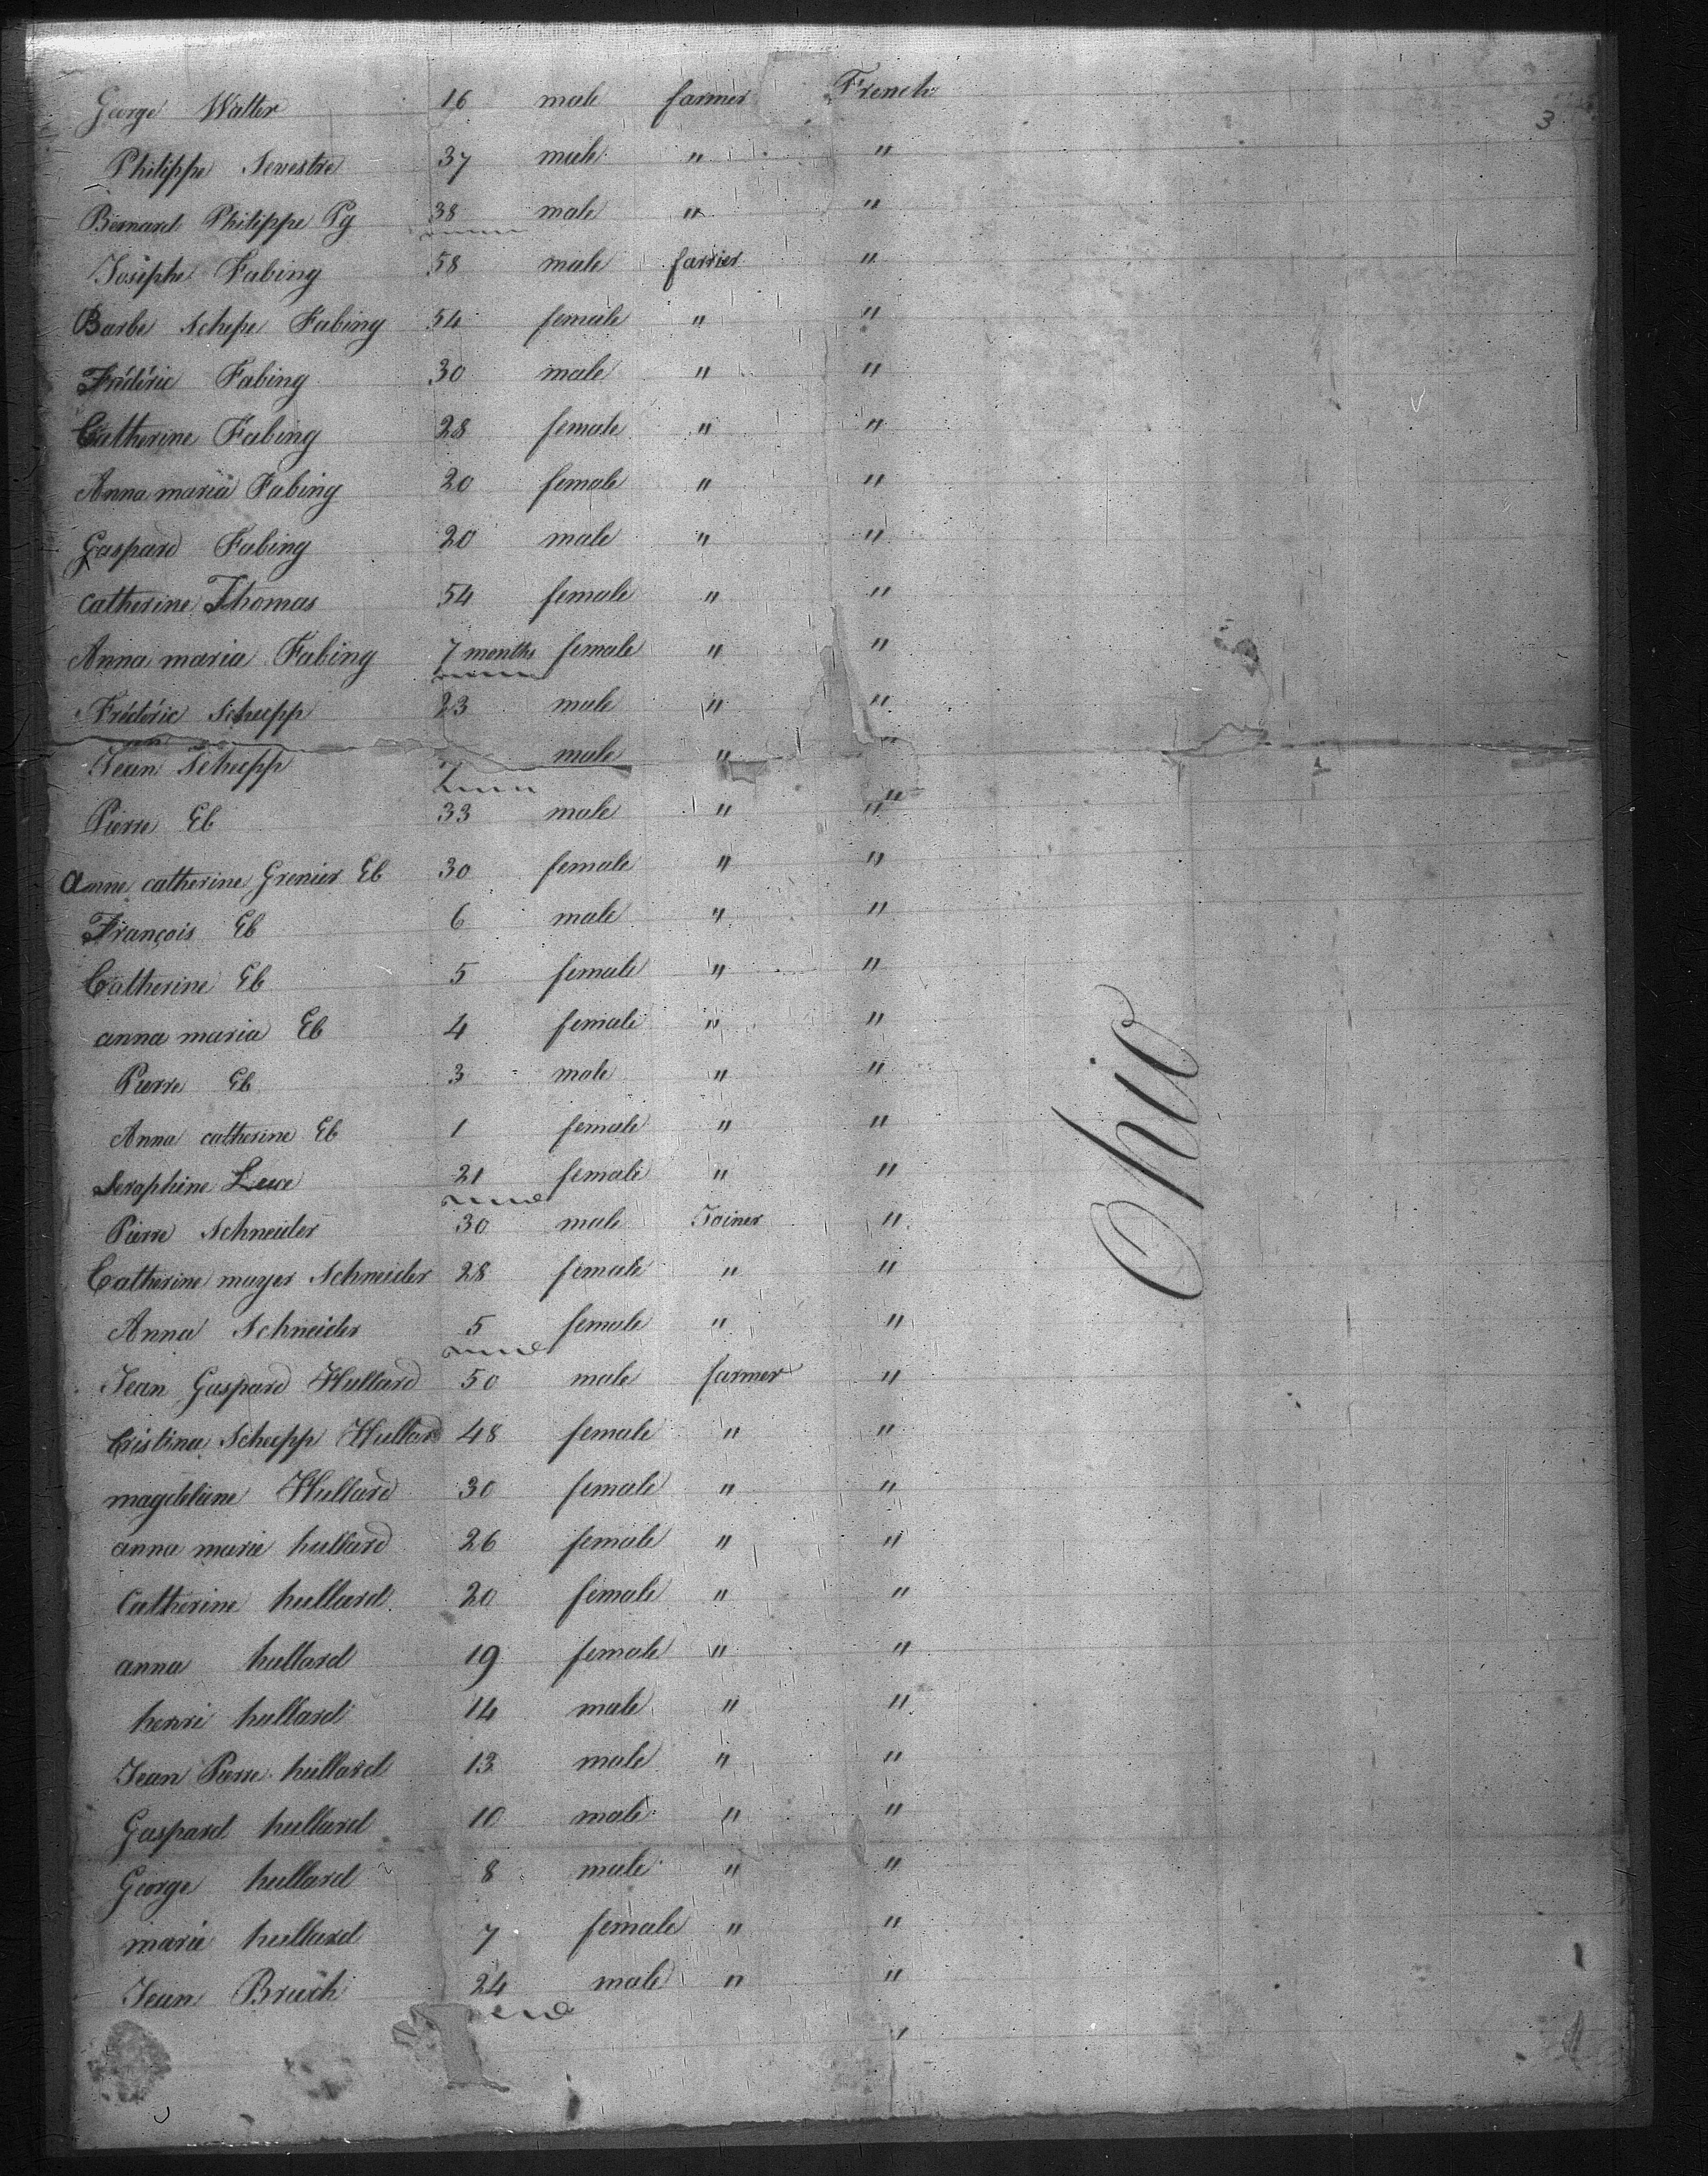 3
George Walter 16 male farmer French
Philippe Senestre 37 male " "
Bernard Philippe Pg 38 male " "
Josephe Fabing 58 male farrier "
Barbe Schepe Fabing 54 female " "
Fréderic Fabing 30 male " "
Catherine Fabing 28 female " "
Anna maria Fabing 20 female " "
Gaspard Fabing 20 male " "
catherine Thomas 54 female " "
Anna maria Fabing 7 months female " "
Fréderic Schepp 23 male " "
Jean Schepp male " "
Pierre Eb 33 male " "
anne catherine Grenier Eb 30 female " "
François Eb 6 male " "
Catherine Eb 5 female " "
anna maria Eb 4 female " "
Pierre Eb 3 male " "
Anna catherine Eb 1 female " "
Seraphine 21 female " "
Pierre Schneider 30 male Joiner "
Catherine mayer Schneider 28 female " "
Anna Schneider 5 female " "
Jean Gaspard Hullard 50 male farmer "
Cristina Schepp Hullard 48 female " "
magdeleine Hullard 30 female " "
anna marie hullard 26 female " "
Catherine hullard 20 female " "
anna hullard 19 female " "
henri hullard 14 male " "
Jean Pierre hullard 13 male " "
Gaspard hullard 10 male " "
George hullard 8 male " "
marie hullard 7 female " "
Jean Bruch 24 male " "
Ohio